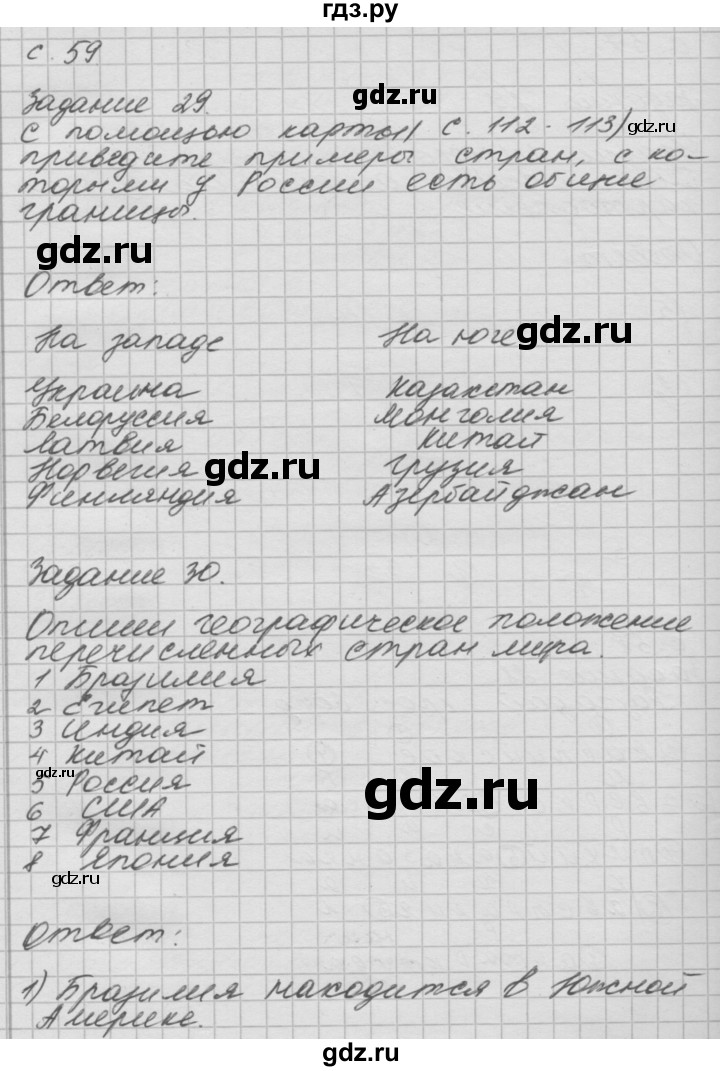 гдз.ру
с. 59
Задание 29.
gdz.ru
С помощью карты( с. 112 - 113)
gdz.ru
приведите примеры стран, с ко-
торыми у России есть общие
границы.
gdz.ru
Ответ:
На западе На юге
gdz.ru
Украина Казахстан
Белоруссия Монголия
Латвия Китай
Норвегия Грузия
gdz.ru
Финляндия Азербайджан
Задание 30.
Опиши географическое положение
перечисленных стран мира.
1 Бразилия
2 Египет
3 Индия
4 Китай
gdz.ru
5 Россия
gdz.ru
6 США
7 Франция
8 Япония
gdz.ru
Ответ:
1) Бразилия находится в Южной
Америке.
gdz.ru
gdz.ru